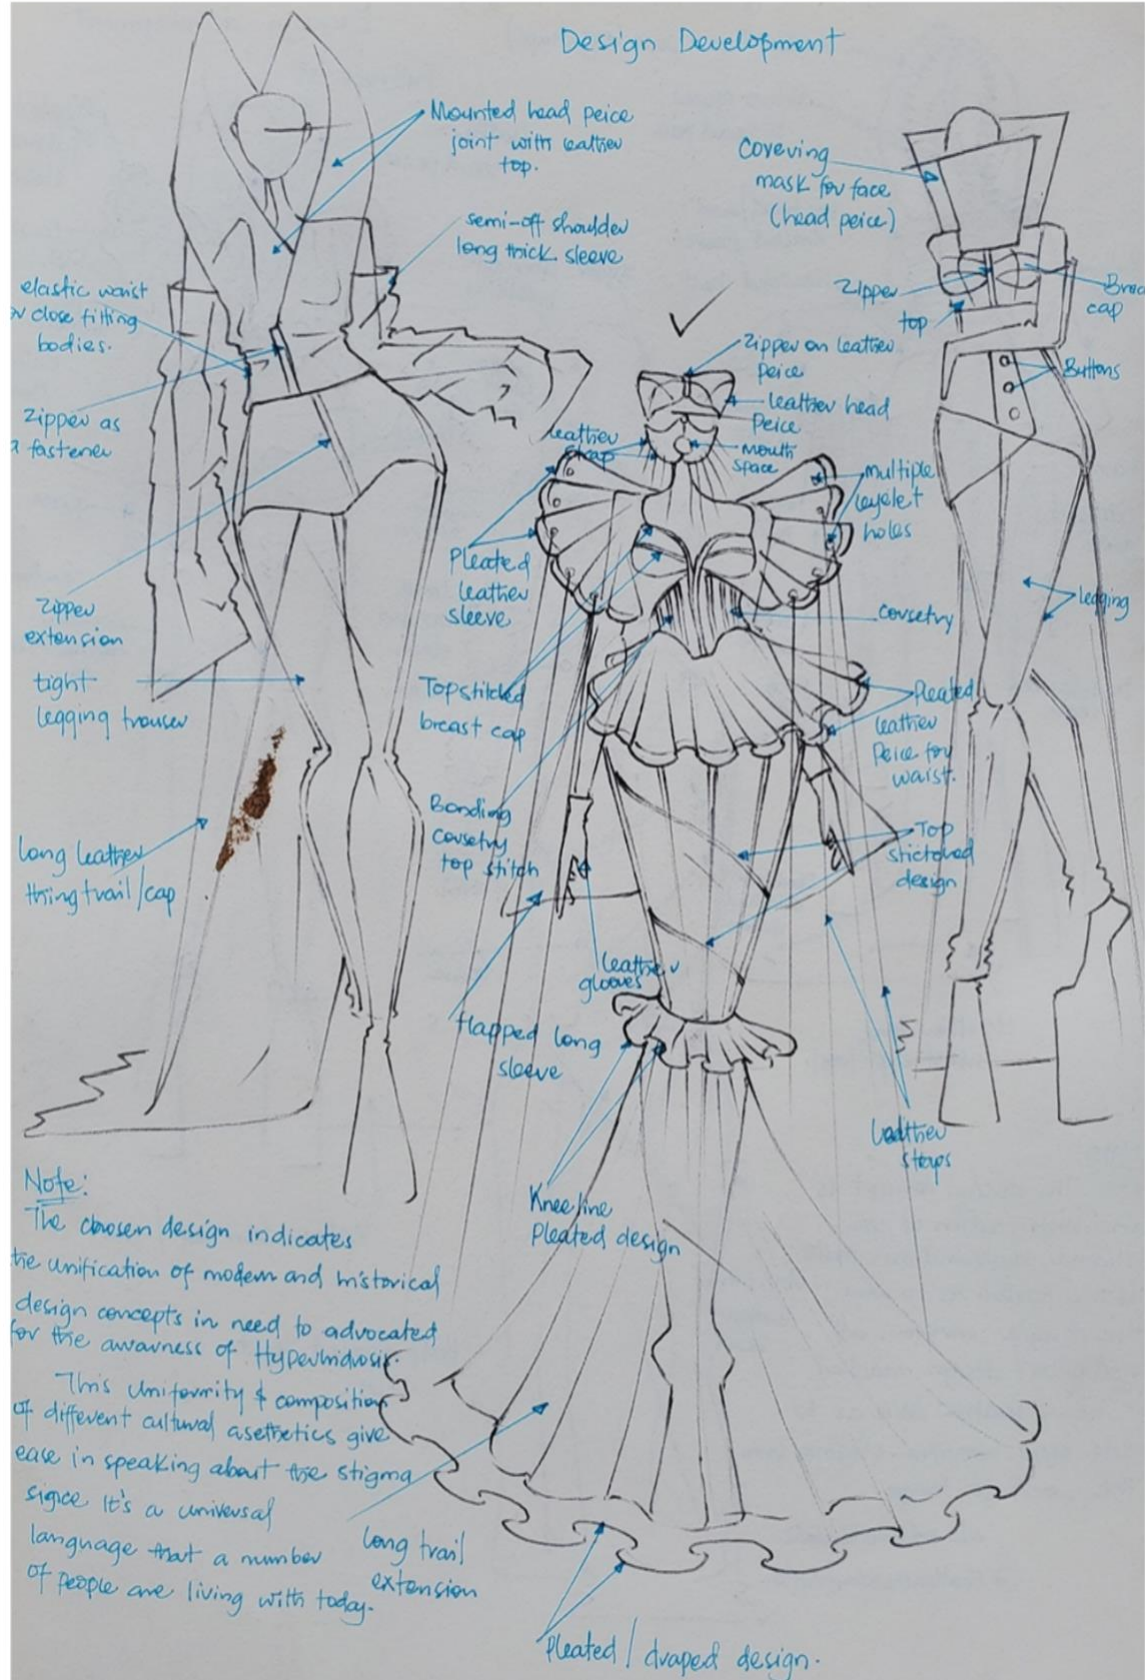 Design Development
Mounted head peice
joint with leather
top.
semi-off shoulder
long thick sleeve
elastic waist
or close fitting
bodies.
Zipper as
a fastener
Zipper
extension
tight
legging trouser
long leather
thing trail/cap
Covering
mask for face
(head peice)
Zipper
top
cap
Buttons
legging
Zipper on leather
peice
leather head
Peice
leather
strap
mouth
space
multiple
eyelet
holes
Pleated
leather
sleeve
corsetry
Topstitched
breast cap
Pleated
leather
Peice for
waist.
Bonding
corsetry
top stitch
Top
design
leather
glooves
flapped long
sleeve
leather
straps
Kneeline
Pleated design
Note:
The chosen design indicates
the unification of modern and historical
design concepts in need to advocated
for the awarness of Hyperhidrosis.
This Uniformity & composition
of different cultural asethetics give
ease in speaking about the stigma
signce it's a universal
language that a number
of people are living with today.
long trail
extension
Pleated / draped design.